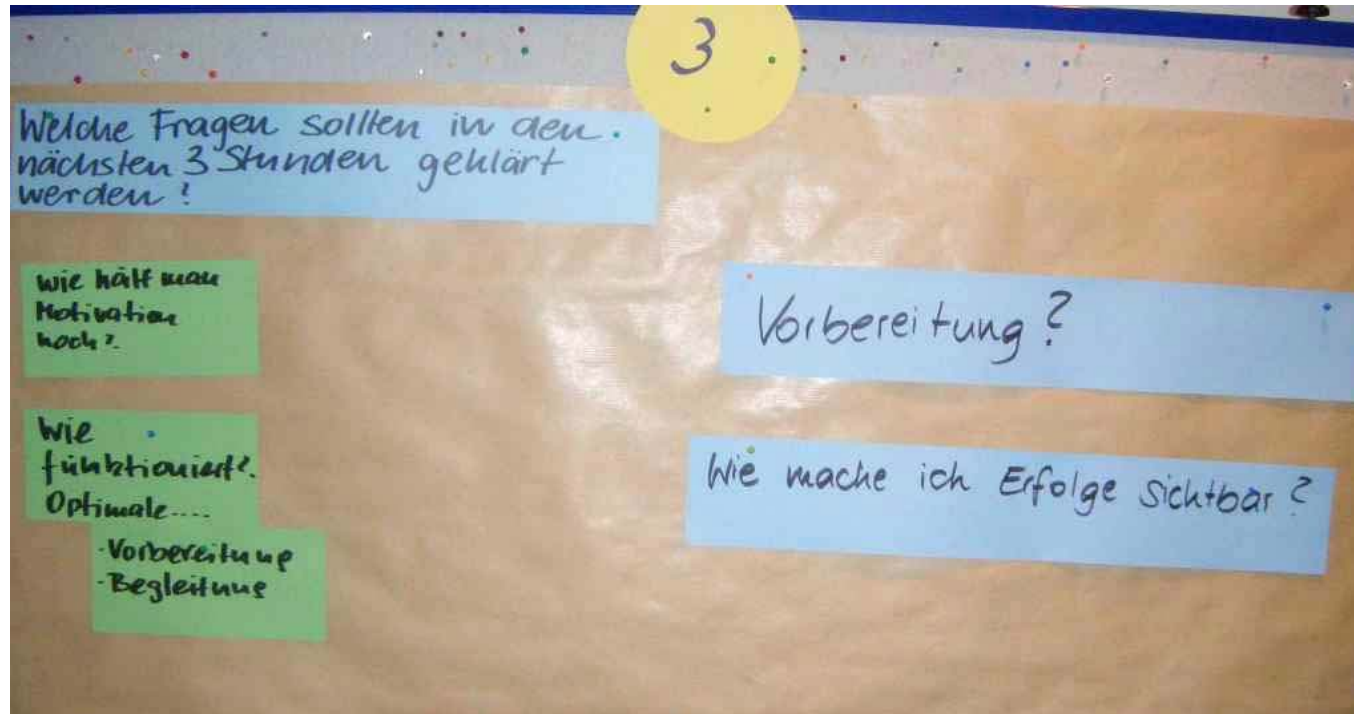 3
Welche Fragen sollten in den
nächsten 3 Stunden geklärt
werden?
Wie hält man
Motivation
hoch?
Wie
funktioniert?
Optimale....
-Vorbereitung
-Begleitung
Vorbereitung?
Wie mache ich Erfolge sichtbar?